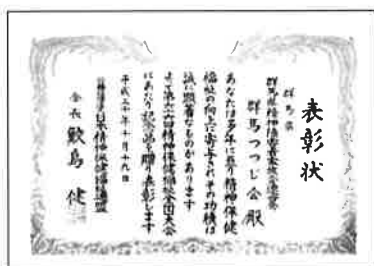 表彰状
群馬県
群馬県精神障害者家族会連合会
群馬つつじ会殿
あなたは多年に亘り精神保健
福祉の向上に寄与されその功績は
誠に顕著なものがあります
よって第六十六回精神保健福祉全国大会
にあたり記念品を贈り表彰します
平成三十年十月十九日
日本精神保健福祉連盟
会長 鮫島 健